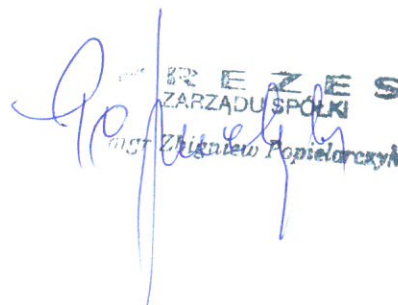 PREZES
ZARZĄDU SPÓŁKI
mgr Zbigniew Popielarczyk